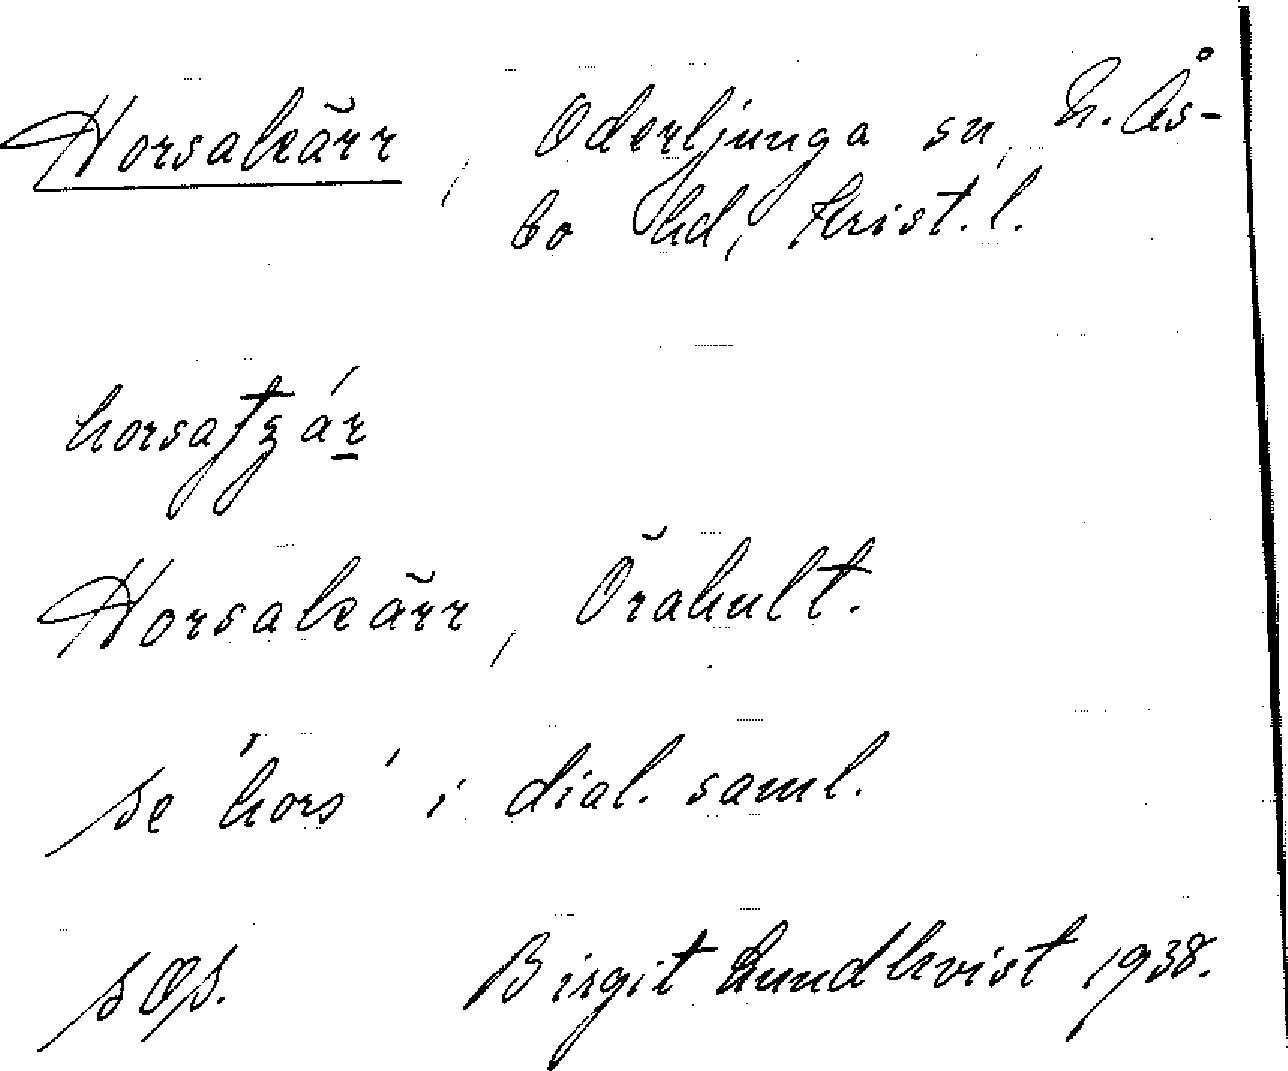 Horsakärr, Oderljunga sn, N. Ås-
bo hd, Krist. l.
Horsakärr, Örahult.
se 'hors' i dial. saml.
Birgit Lundkvist 1938.